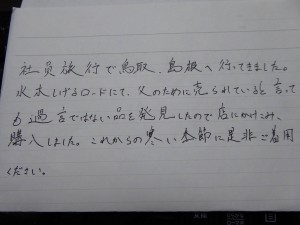 社員旅行で鳥取、島根へ行ってきました。
水木しげるロードにて、父のために売られていると言って
も過言ではない品を発見したので店にかけこみ、
購入しました。これからの寒い季節に是非ご着用
ください。